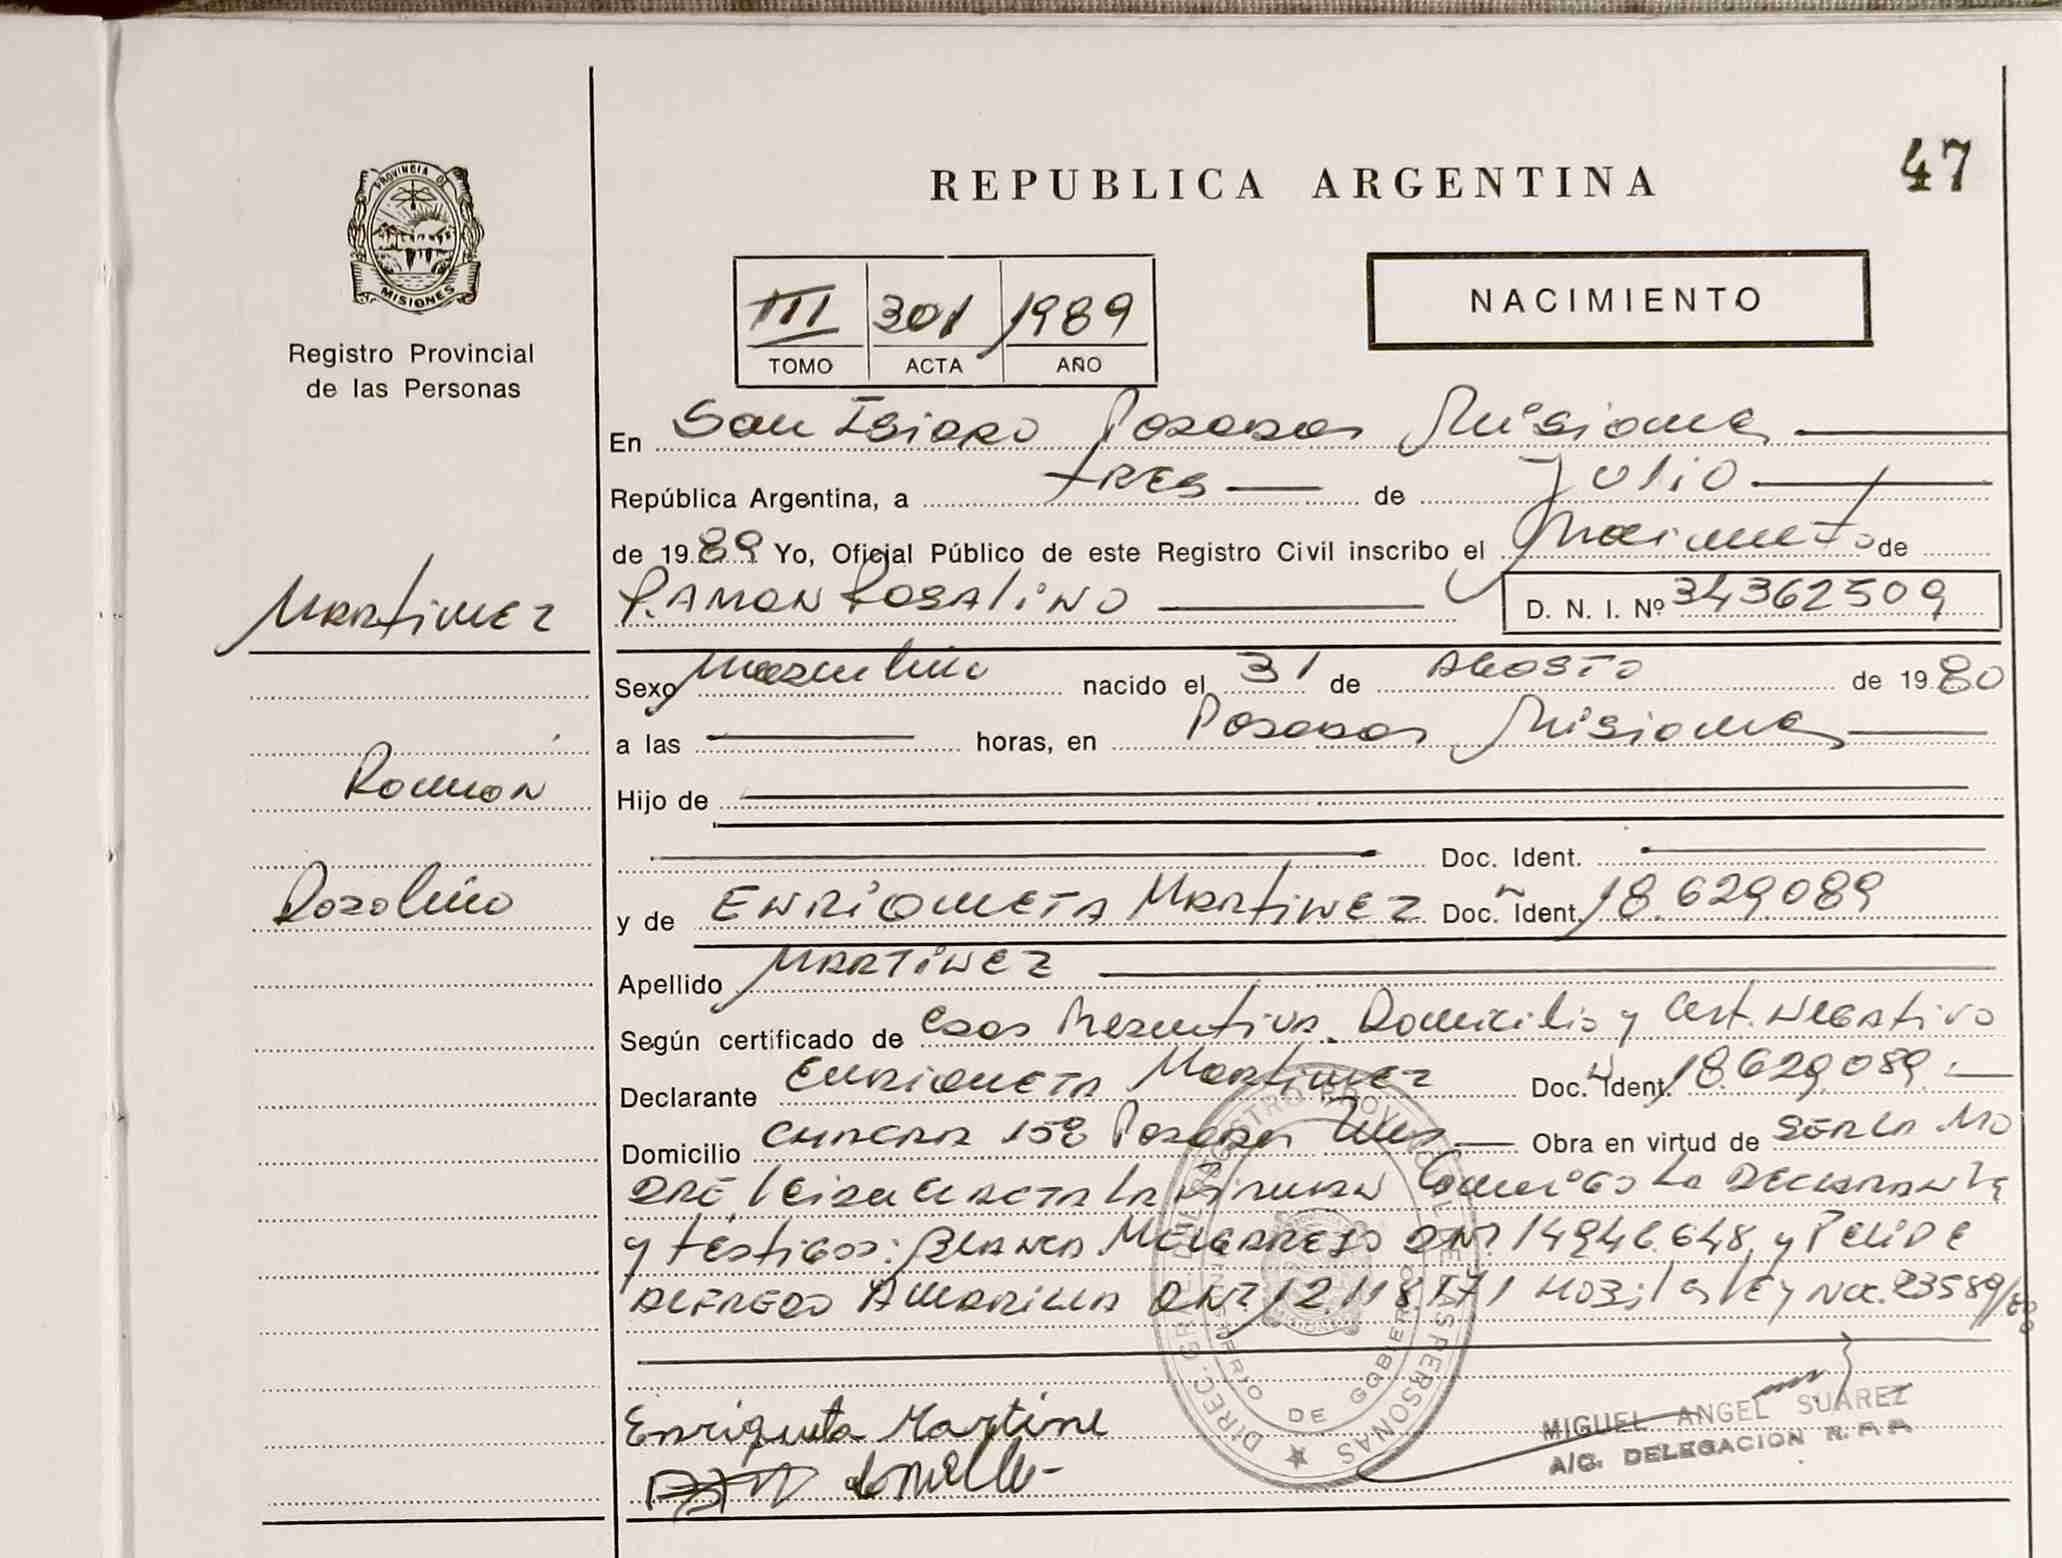 47
REPUBLICA ARGENTINA
PROVINCIA DE
MISIONES
Registro Provincial
de las Personas
III 301 1989
TOMO ACTA AÑO
NACIMIENTO
En San Isidro Posadas Misiones
República Argentina, a tres de Julio
de 1989 Yo, Oficial Público de este Registro Civil inscribo el Nacimiento de
Martinez
RAMON ROSALINO D. N. I. Nº 34362509
Sexo Masculino nacido el 31 de AGOSTO de 1980
a las horas, en Posadas Misiones
Ramon
Hijo de
Doc. Ident.
Rosalino
y de ENRIQUETA MARTINEZ Doc. Ident. 18.629.089
Apellido MARTINEZ
Según certificado de Domicilio y Cert. Negativo
Declarante ENRIQUETA Martinez Doc. Ident. 18.629.089
Domicilio CHACRA 158 Posadas Mnes Obra en virtud de SER LA MA
DRE leida el ACTA LA firman Conmigo La DECLARANTE
y testigos: BLANCA MELGAREJO DNI 14946.648, y
ALFREDO AMARILLA DNI 12.118.171 Ley Nac. 23589/88
Enriqueta Martine
DIREC. GRAL. REGISTRO PROVINCIAL DE LAS PERSONAS
MINISTERIO DE GOBIERNO
MIGUEL ANGEL SUAREZ
A/C. DELEGACION R.P.P.